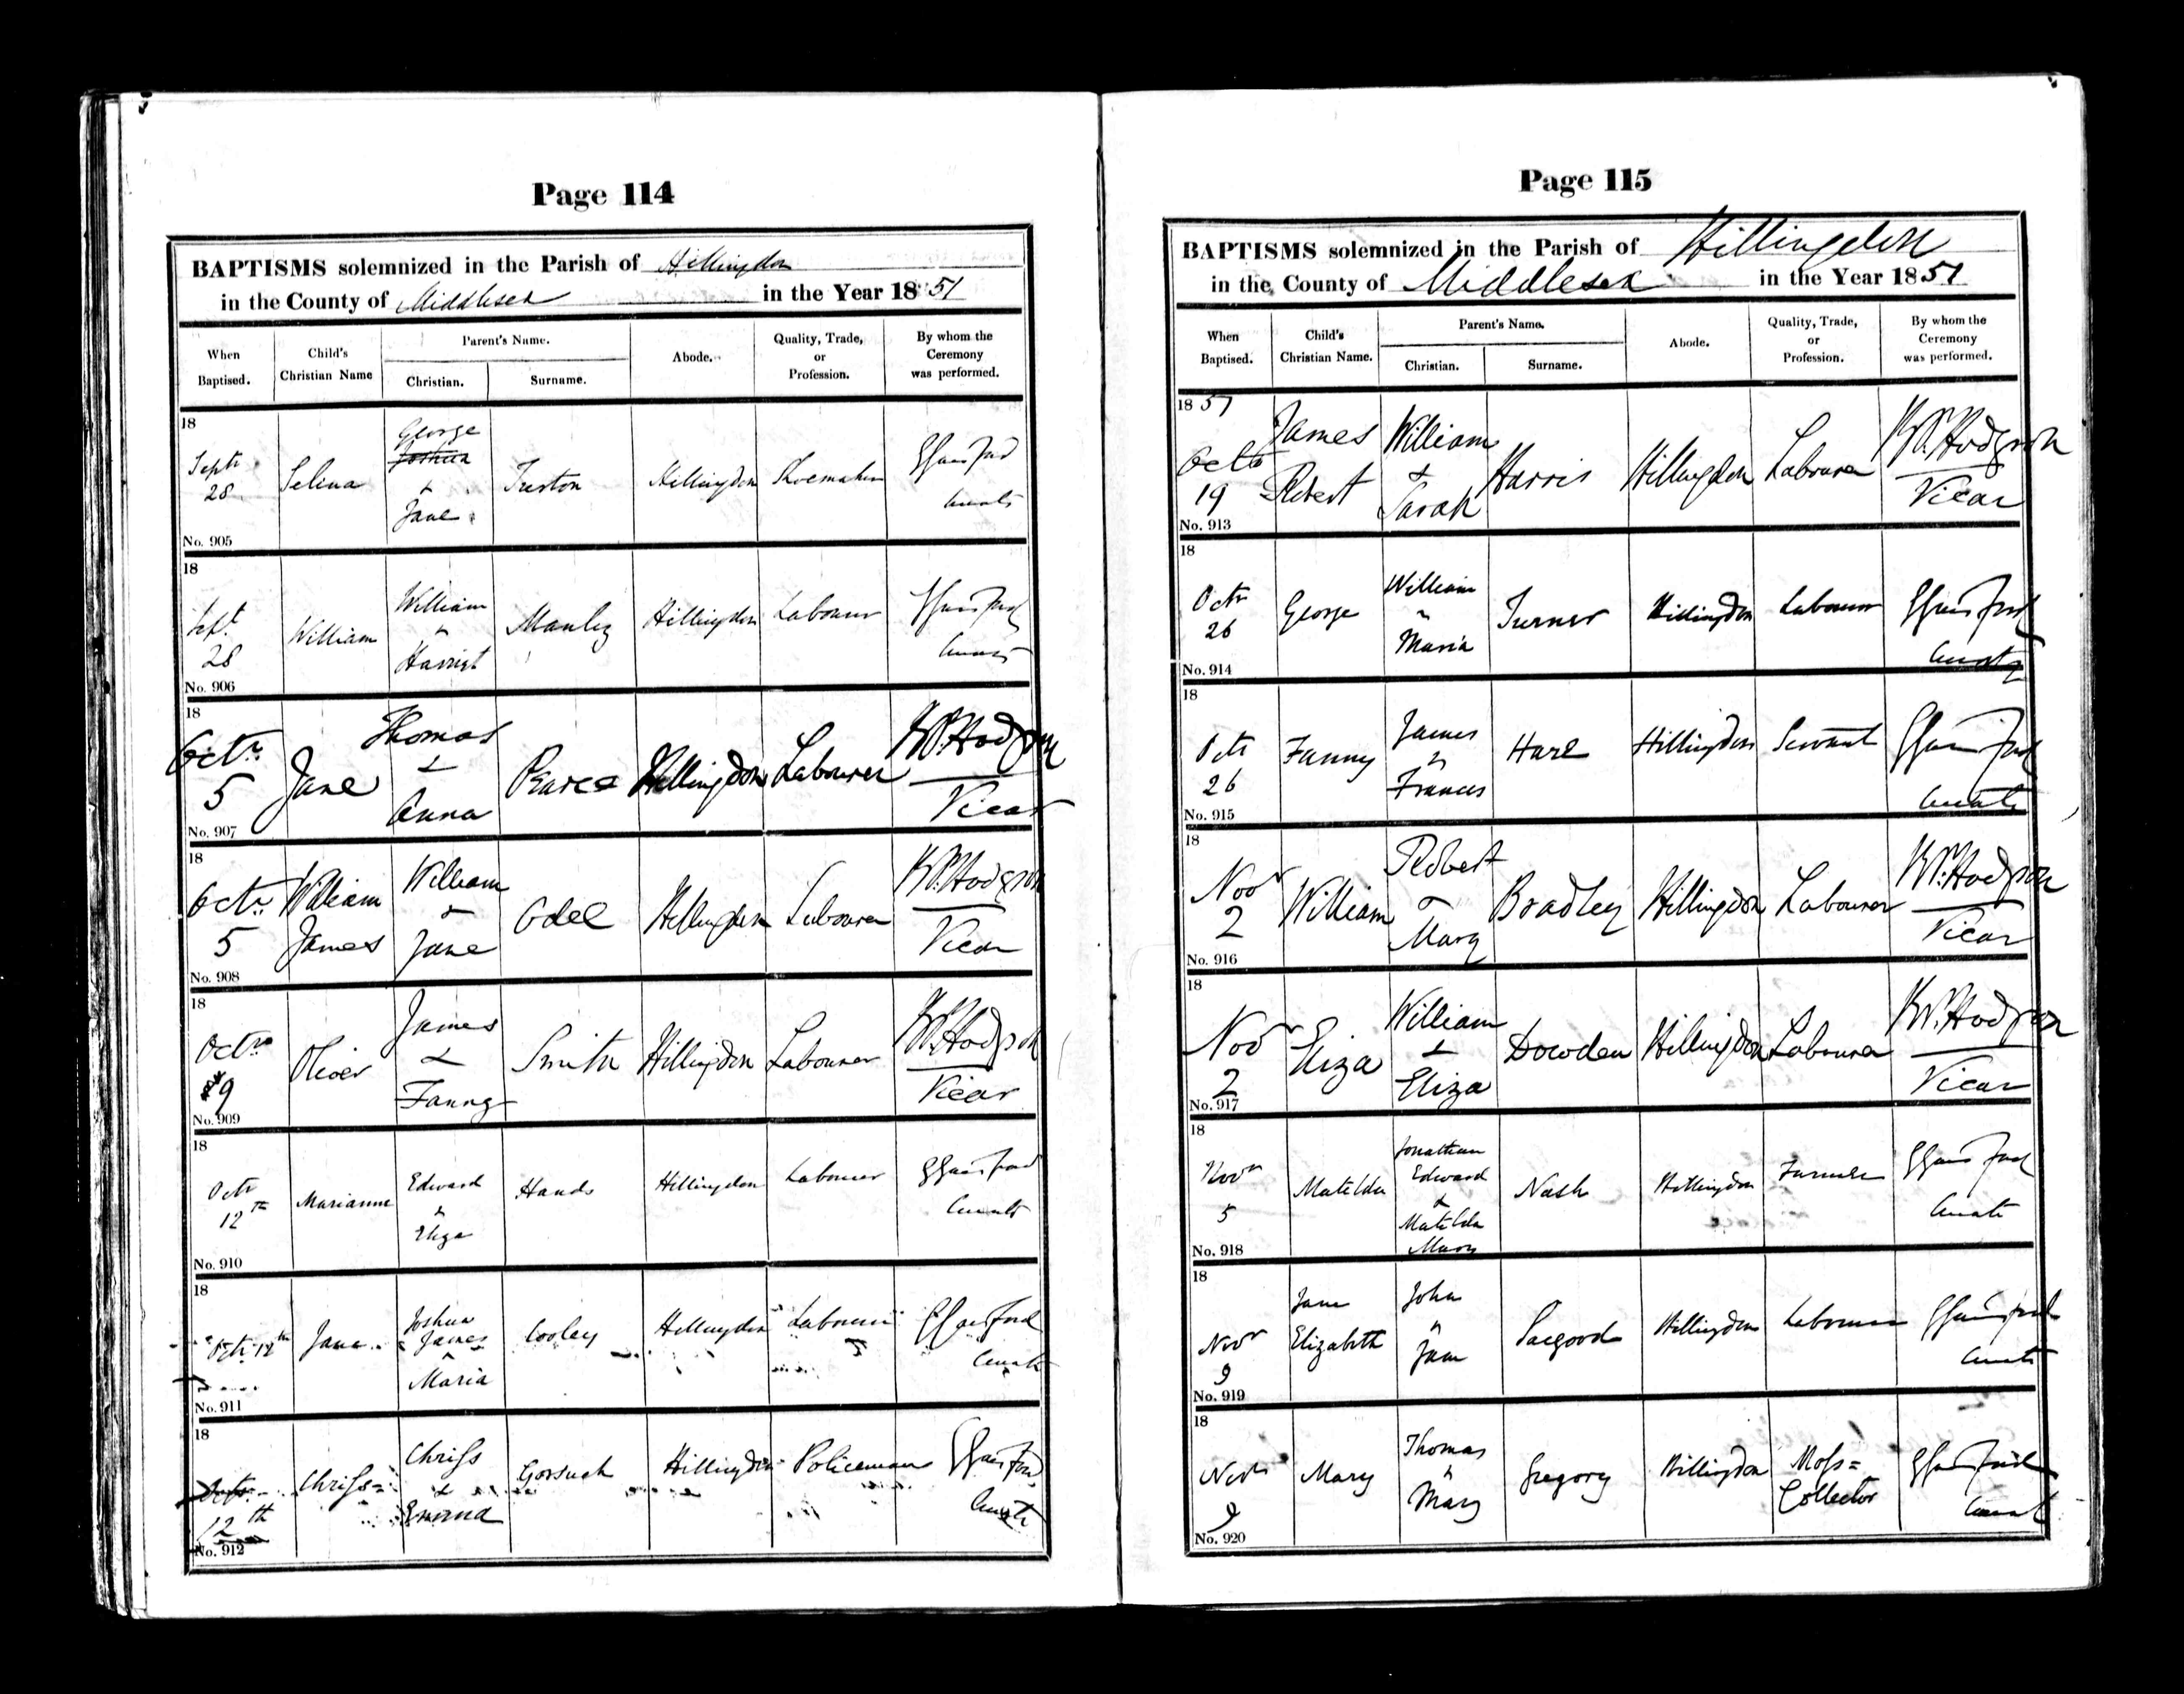 Page 114
BAPTISMS solemnized in the Parish of Hillingdon
in the County of Middlesex in the Year 1851
When Baptised. Child's Christian Name Parent's Name. Christian. Surname. Abode. Quality, Trade, or Profession. By whom the Ceremony was performed.
18
Septr 28 Selina George Joshua & Jane Hillingdon Shoemaker Curate
No. 905
18
Sept 28 William William & Harriet Manley Hillingdon Labourer Curate
No. 906
18
Octr 5 Jane Thomas & Anna Pearce Hillingdon Labourer Hodgson Vicar
No. 907
18
Octr 5 William James William & Jane Odell Hillingdon Labourer Hodgson Vicar
No. 908
18
Octr 9 Oliver James & Fanny Smith Hillingdon Labourer Hodgson Vicar
No. 909
18
Octr 12th Marianne Edward & Eliza Hands Hillingdon Labourer Curate
No. 910
18
Octr 12th Jane Joshua James & Maria Cooley Hillingdon Labourer Curate
No. 911
18
Octr 12th Chriss= Chriss & Emma Gorsuch Hillingdon Policeman Curate
No. 912
Page 115
BAPTISMS solemnized in the Parish of Hillingdon
in the County of Middlesex in the Year 1851
When Baptised. Child's Christian Name. Parent's Name. Christian. Surname. Abode. Quality, Trade, or Profession. By whom the Ceremony was performed.
1851
Octr 19 James Robert William & Sarah Harris Hillingdon Labourer Hodgson Vicar
No. 913
18
Octr 26 George William & Maria Turner Hillingdon Labourer Curate
No. 914
18
Octr 26 Fanny James & Frances Hare Hillingdon Servant Curate
No. 915
18
Novr 2 William Robert & Mary Bradley Hillingdon Labourer Hodgson Vicar
No. 916
18
Novr 2 Eliza William & Eliza Dowden Hillingdon Labourer Hodgson Vicar
No. 917
18
Novr 5 Matilda Jonathan Edward & Matilda Mary Nash Hillingdon Farmer Curate
No. 918
18
Novr 9 Jane Elizabeth John & Jane Hillingdon Labourer Curate
No. 919
18
Novr 9 Mary Thomas & Mary Gregory Hillingdon Moss= Collector Curate
No. 920